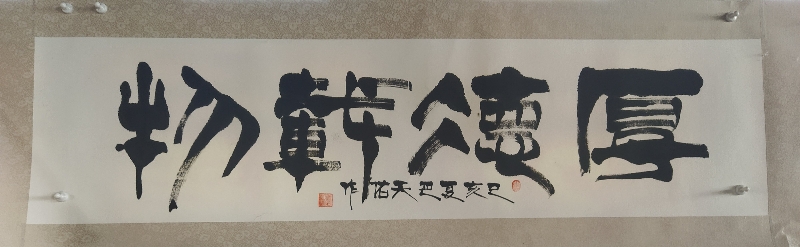 厚德載物
己亥夏巴天佑作